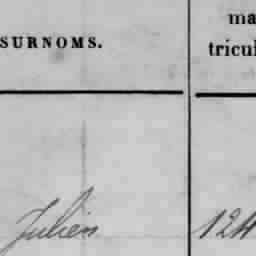 SURNOMS.
ma
tricul
Julien 124